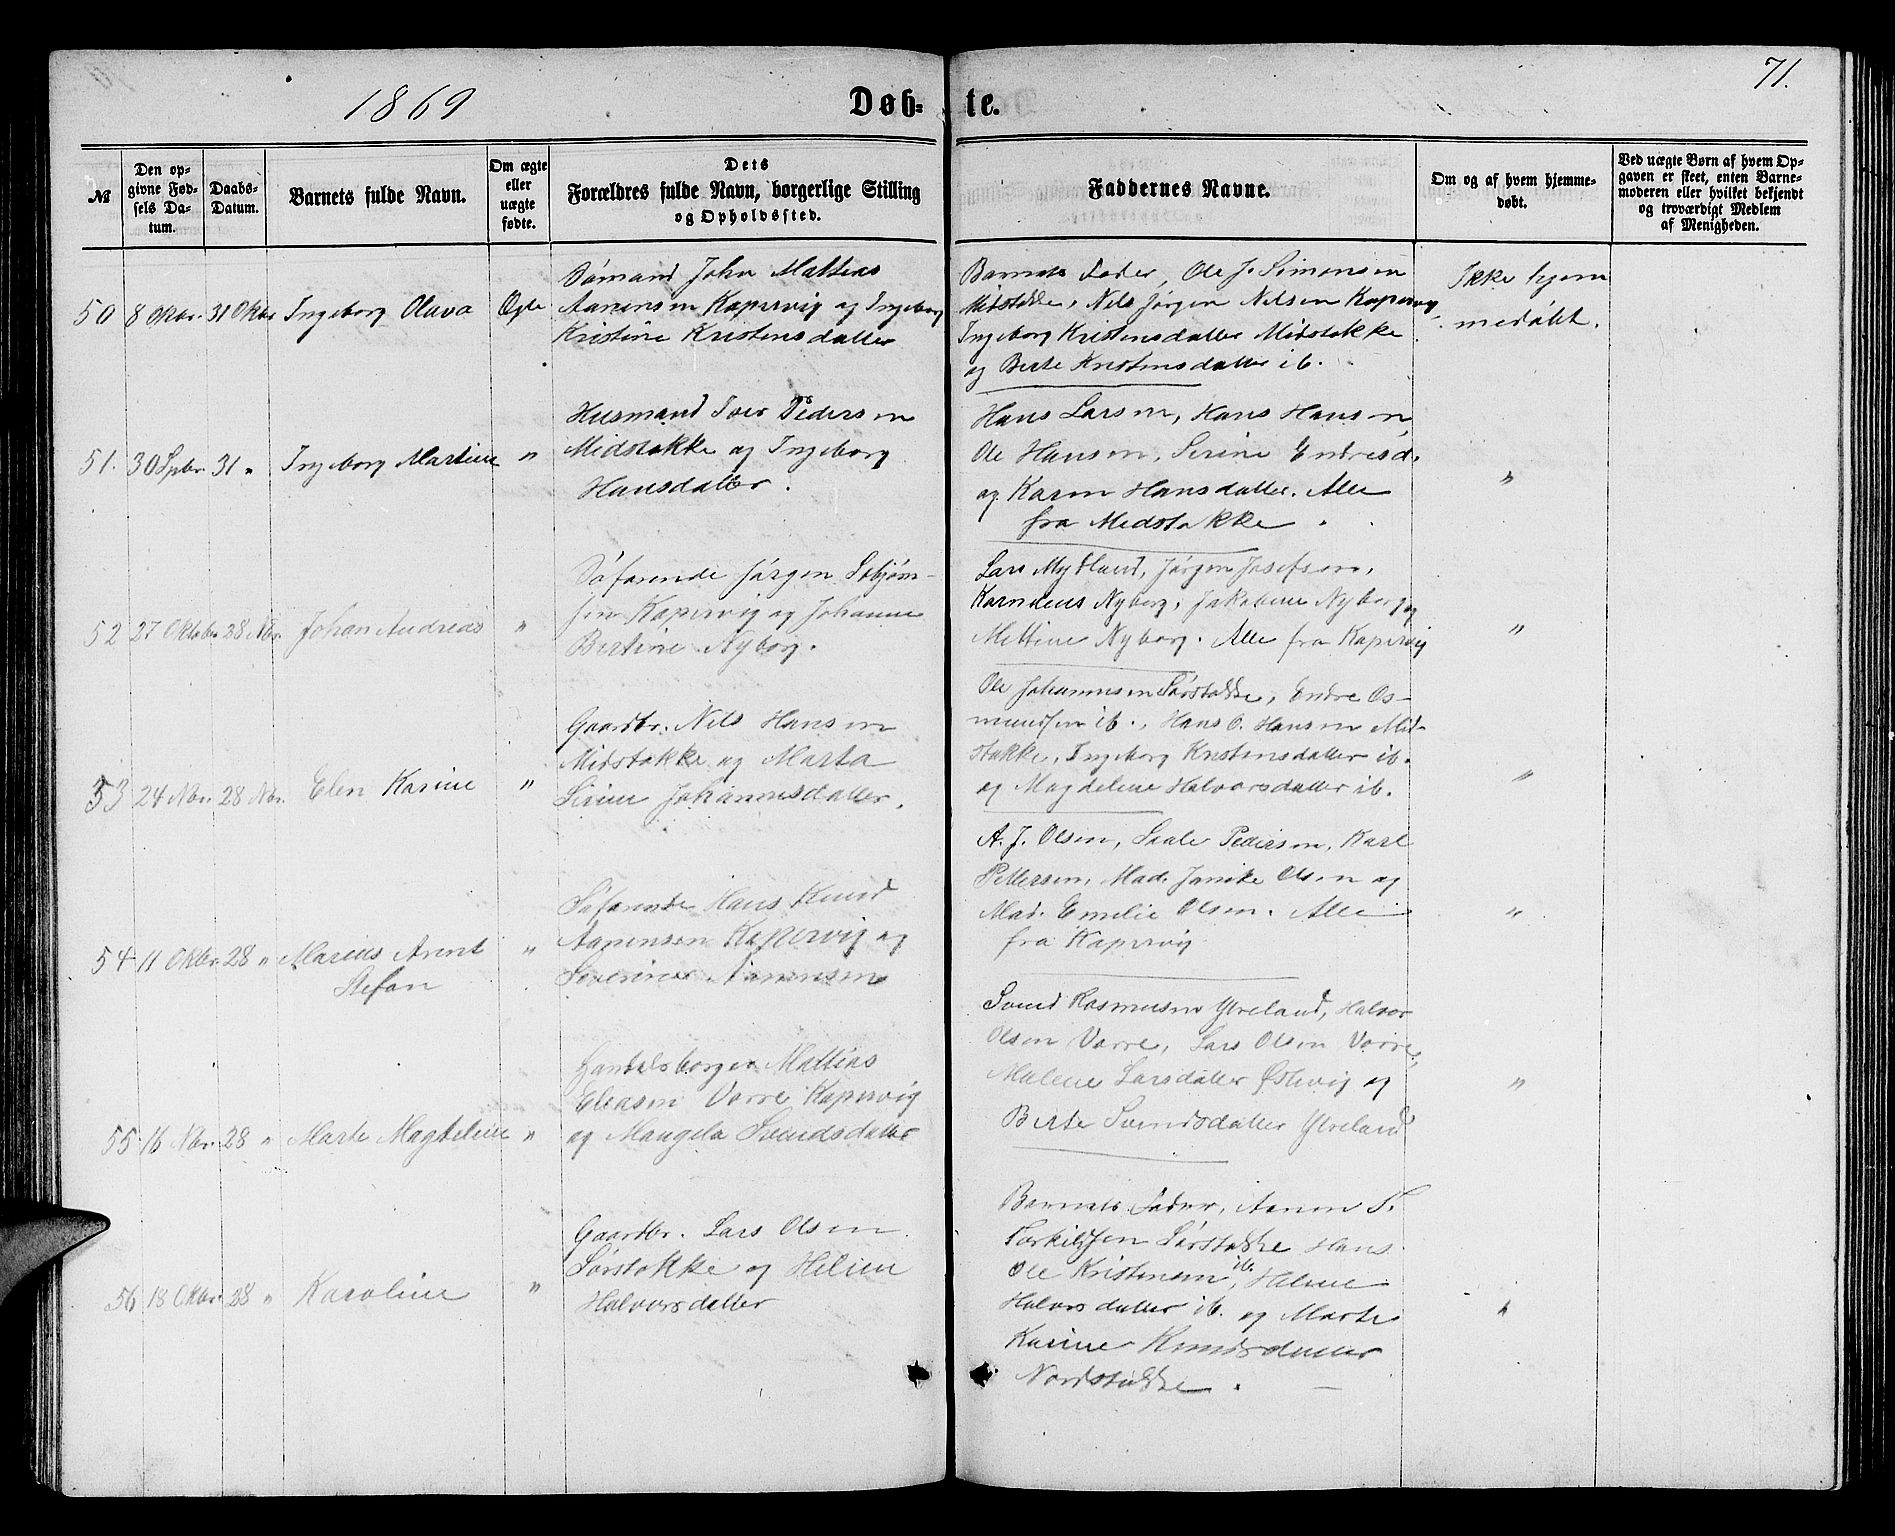 1869
Døb-
te.
71.
№
Den op-
givne Fød-
sels Da-
tum.
Daabs-
Datum.
Barnets fulde Navn.
Om ægte
eller
uægte
fødte.
Dets
Forældres fulde Navn, borgerlige Stilling
og Opholdssted.
Faddernes Navne.
Om og af hvem hjemme-
døbt.
Ved uægte Børn af hvem Op-
gaven er skeet, enten Barne-
moderen eller hvilket bekjendt
og troværdigt Medlem
af Menigheden.
50 8 Oktbr. 31 Oktbr Ingeborg Olava Ægte
Sømand John Mattias
Aanensen Kapervig og Ingeborg
Kristine Kristensdatter
Barnets Fader, Ole J. Simonsen
Midstokke, Nils Jørgen Nilsen Kapervig,
Ingeborg Kristensdatter Midstokke
og Berte Kristensdatter ib.
Ikke hjem
medøbt.
51. 30 Spbr. 31 " Ingeborg Martine "
Husmand Iver Pedersen
Midstokke og Ingeborg
Hansdatter.
Hans Larsen, Hans Hansen,
Ole Hansen, Serine Endresd.
og Karen Hansdatter. Alle
fra Midstokke.
"
52 27 Oktober 28 Nbr. Johan Andreas "
Søfarende Jørgen Schjøn-
sen Kapervig og Johanne
Bertine Nyborg.
Lars Mydland, Jørgen Josefsen,
Nyborg, Jakobine Nyborg og
Mettine Nyborg. Alle fra Kapervig
"
53 24 Nbr. 28 Nbr. Elen Karine "
Gaardbr. Nils Hansen
Midstokke og Marta
Serine Johannesdatter.
Ole Johannesen Sørstokke, Endre Os-
mundsen ib., Hans O. Hansen Mid-
stokke, Ingeborg Kristensdatter ib.
og Magdelene Halvorsdatter ib.
"
54 11 Oktbr. 28 " Marius Arent
Stefan "
Søfarende Hans Knud
Aanensen Kapervig og
Severine Aanensen
A. J. Olsen, Saale Pedersen, Karl
Pettersen, Mad. Janike Olsen og
Mad. Emelie Olsen. Alle
fra Kapervig
"
55 16 Nbr. 28 " Marte Magdelene "
Handelsborger Mattias
Eleasen Vorre Kapervig
og Mangela Svendsdatter
Svend Rasmusen Ytreland, Halvor
Olsen Vorre, Lars Olsen Vorre,
Malene Larsdatter Østevig og
Berte Svendsdatter Ytreland
"
56 18 Oktbr. 28 " Karoline "
Gaardbr. Lars Olsen
Sørstokke og Helene
Halvorsdatter
Barnets Fader, Aanen T.
Torkildsen Sørstokke Hans
Ole Kristensen ib., Helene
Halvorsdatter ib. og Marte
Karine Knudsdatter
Nordstokke.
"